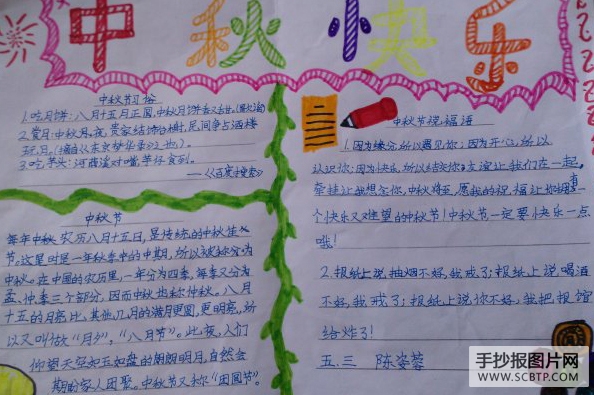 中秋快乐
中秋节习俗
1.吃月饼：八月十五月正圆，中秋月饼香又甜。
2.赏月：中秋月夜，贵家结饰台榭，民间争占酒楼
玩月。
3.吃芋头：河莼溪对嘴芋仔食到。
——《百度搜索》
中秋节
每年中秋农历八月十五日，是传统的中秋佳
节。这里时是一年秋季中的中期，所以被称为中
中秋。在中国的农历里，一年分为四季，每季又分为
孟、仲、季三个部分，因而中秋也称仲秋。八月
十五的月亮比其他几月的满月更圆，更明亮，所
以又叫做"月夕"，"八月节"。此夜，人们
仰望天空如玉如盘的朗朗明月，自然会
期盼家人团聚。中秋节又称"团圆节"。
中秋节祝福语
1.因为缘分，所以遇见你；因为开心，所以
认识你；因为快乐，所以结交你；友谊让我们在一起，
牵挂让我想念你，中秋将至，愿我的祝福让你拥有
一个快乐又难忘的中秋节！中秋节一定要快乐一点
哦！
2.报纸上说抽烟不好，我戒了；报纸上说喝酒
不好，我戒了；报纸上说你不好，我把报馆
给炸了！
五.三 陈姿蓉
手抄报图片网
WWW.SCBTP.COM